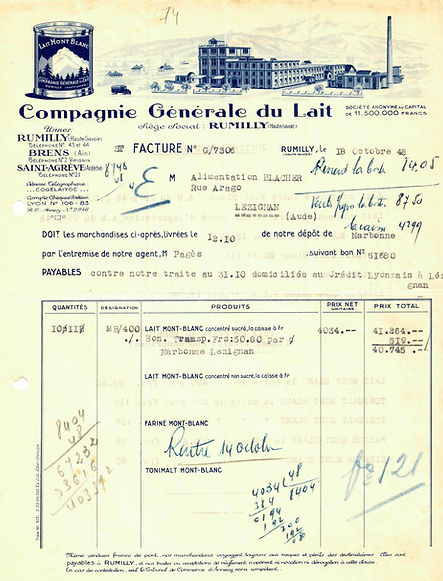 74
LAIT MONT BLANC
COMPAGNIE GÉNÉRALE DU LAIT
Compagnie Générale du Lait
SOCIÉTÉ ANONYME AU CAPITAL
DE 11.500.000 FRANCS
Siège Social : RUMILLY (Haute-Savoie)
Usines:
RUMILLY (Haute-Savoie)
TÉLÉPHONE Nos 43 et 44
BRENS (Ain)
TÉLÉPHONE N°2 VIRIGNIN
SAINT-AGRÈVE (Ardèche)
TÉLÉPHONE N°21
Adresse Télégraphique:
COGELAIT
Compte Chèques Postaux
LYON N° 106-83
FACTURE N° G/7306
RUMILLY, le 18 Octobre 48
(HAUTE-SAVOIE)
M Alimentation BLACHER
Rue Arago
LEZIGNAN
(Aude)
8748
E
84.05
87 50
4299
DOIT les marchandises ci-après, livrées le 12.10 de notre dépôt de Narbonne
par l'entremise de notre agent, M Pagès suivant bon N° 51680
PAYABLES contre notre traite au 31.10 domiciliée au Crédit Lyonnais à Léz
ignan
QUANTITÉS DÉSIGNATION PRODUITS PRIX NET UNITAIRE PRIX TOTAL
MB/400 LAIT MONT-BLANC concentré sucré, la caisse à fr 4034.-- 41.264.--
./. Bon. Transp. Frs: 50.80 par 519.--
Narbonne Lezignan 40.745 .--
LAIT MONT-BLANC concentré non sucré, la caisse à fr
FARINE MONT-BLANC
Rentré 14 octobre
TONIMALT MONT-BLANC
8404
48
67232
33616
403392
4034 48
384 8404
0194
192
200
192
08
121
Même vendues franco de port, nos marchandises voyagent toujours aux risques et périls des destinataires. Elles sont
payables à RUMILLY, et nos traites ou acceptations de règlement n'opèrent ni novation ni dérogation à cette clause.
En cas de contestation, seul le Tribunal de Commerce d'Annecy sera compétent.